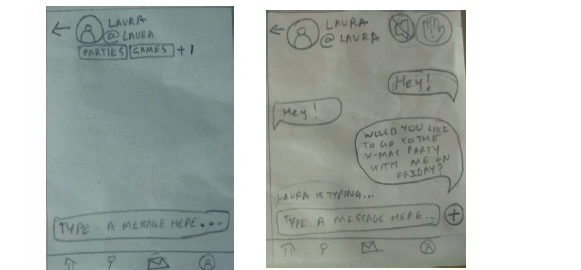 LAURA
@ LAURA
PARTIES GAMES +1
TYPE A MESSAGE HERE...
LAURA
@ LAURA
Hey!
Hey!
WOULD YOU LIKE
TO GO TO THE
X-MAS PARTY
WITH ME ON
FRIDAY?
LAURA IS TYPING...
TYPE A MESSAGE HERE...